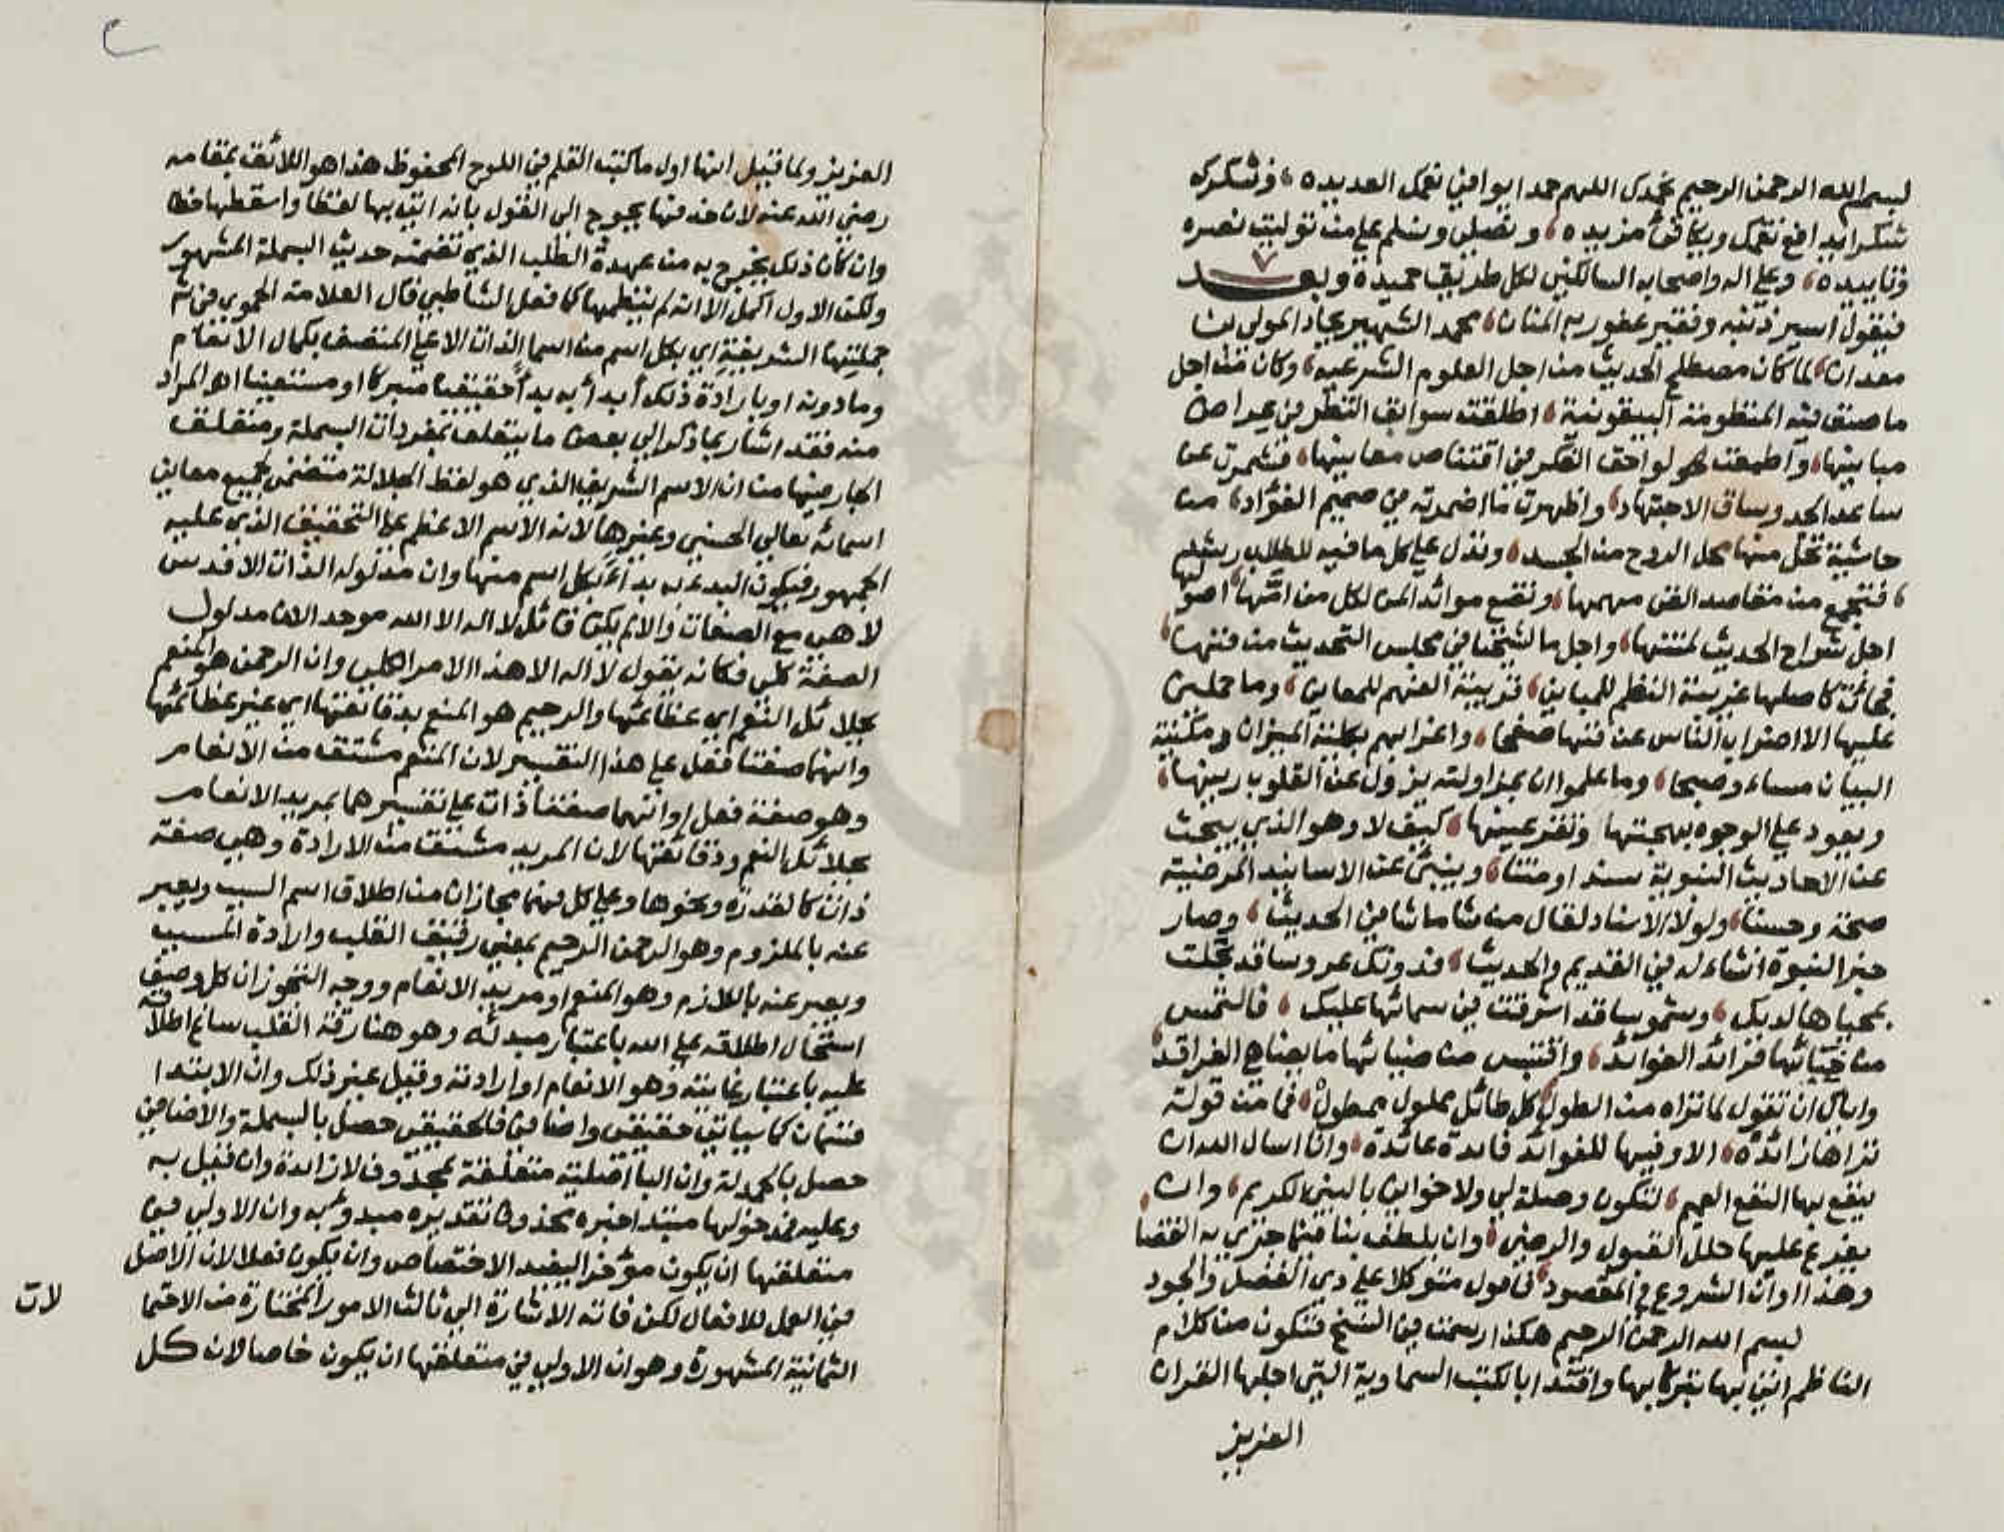 بسم الله الرحمن الرحيم نحمدك اللهم حمدا يوافي نعمك العديده، ونشكرك
شكرا يدافع نقمك ويكافئ مزيده، ونصلي ونسلم على من توليت نصره
وتاييده، وعلى اله واصحابه السالكين لكل طريق حميدة وبعد
فيقول اسير ذنبه وفقير عفو ربه المنان، محمد الشهير بجاد المولى بن
معدان، لما كان مصطلح الحديث من اجل العلوم الشرعيه، وكان من اجل
ما صنف فيه المنظومة البيقونية، اطلقت سوابق النظر في عراص
مبانيها، واطمعت لواحق الفكر في اقتناص معانيها، فشمرت عن
ساعد الجد وساق الاجتهاد، واظهرت ما اضمرته في صميم الفؤاد، من
حاشية تحل منها محل الروح من الجسد، وتدل على كل ما فيه للطالب رشد
، فتجمع من مقاصد الفن مهمها، وتضع موائد المن لكل من امها، اصولها
اجل شراح الحديث لمتنها، واجل ما لشيخنا في مجلس التحديث من فنها،
فجاءت كاصلها غريبة النظم للمباني، قريبة الفهم للمعاني، وما حملني
عليها الا اضراب الناس عن فنها صفحا، واغرابهم بكلية الميزان ومكنية
البيان مساء وصبحا، وما علموا ان بمزاولته يزول عن القلوب رينها،
ويعود على الوجوه بهجتها وتقر عينها، كيف لا وهو الذي يبحث
عن الاحاديث النبوية سندا ومتنا، وينبئ عن الاسانيد المرضية
صحة وحسنا، ولولا الاسناد لقال من شا ما شا في الحديث، وصار
خبر النبوة انشاء له في القديم والحديث، فدونك عروسا قد تجلت
بمحياها لديك، وشموسا قد اشرقت في سمائها عليك، فالتمس
من خبائها فرائد الفوائد، واقتبس من ضيائها ما يضاهي الفراقد،
واياك ان تقول لما تراه من الطول، كل طائل مملول ممطول، فما من قولة
تراها زائدة، الا وفيها للفوائد فايدة عائدة، وانا اسال الله ان
ينفع بها النفع العميم، لتكون وصلة لي ولاخواني بالنبي الكريم، وان
يفرغ عليها حلل القبول والرضى، وان يلطف بنا فيما جرى به القضا
وهذا اوان الشروع في المقصود، فاقول متوكلا على ذي الفضل والجود
بسم الله الرحمن الرحيم هكذا رسمت في النسخ فتكون من كلام
الناظم اتي بها تبركا بها واقتدا بالكتب السماوية التي اجلها القران
العزيز
العزيز ولما قيل انها اول ما كتبه القلم في اللوح المحفوظ هذا هو اللائق بمقامه
رضي الله عنه لان حذفها يحوج الى القول بانه اتى بها لفظا واسقطها خطا
وان كان ذلك يخرج به من عهدة الطلب الذي تضمنه حديث البسملة المشهور
ولكن الاول اكمل الا انه لم ينظمها كما فعل الشاطبي قال العلامة الحموي في
جملتها الشريفة اي بكل اسم من اسما الذات الاعلى المتصف بكمال الانعام
وما دونه او بارادة ذلك أبدأ به بدأ حقيقيا متبركا او مستعينا اه المراد
منه فقد اشار بما ذكر الى بعض ما يتعلق بمفردات البسملة ومتعلق
الجار فيها من ان الاسم الشريف الذي هو لفظ الجلالة متضمن لجميع معاني
اسمائه تعالى الحسنى وغيرها لانه الاسم الاعظم على التحقيق الذي عليه
الجمهور فيكون البدء به بدأ بكل اسم منها وان مدلوله الذات الاقدس
لا هي مع الصفات والا لم يكن قائل لا اله الا الله موحدا لان مدلول
الصفة كلي فكانه يقول لا اله الا هذا الامر الكلي وان الرحمن هو المنعم
بجلائل النعم اي عظائمها والرحيم هو المنعم بدقائقها اي غير عظائمها
وانهما صفتا فعل على هذا التفسير لان المنعم مشتق من الانعام
وهو صفة فعل او انهما صفتا ذات على تفسيرهما بمريد الانعام
بجلائل النعم ودقائقها لان المريد مشتق من الارادة وهي صفة
ذات كالقدرة ونحوها وعلى كل فهما مجازان من اطلاق اسم السبب ويعبر
عنه بالملزوم وهو الرحمن الرحيم بمعنى رقيق القلب وارادة المسبب
ويعبر عنه باللازم وهو المنعم او مريد الانعام ووجه التجوز ان كل وصف
استحال اطلاقه على الله باعتبار مبدئه وهو هنا رقة القلب ساغ اطلاقه
عليه باعتبار غايته وهو الانعام او ارادته وقيل غير ذلك وان الابتدا
قسمان كما سياتي حقيقي واضافي فالحقيقي حصل بالبسملة والاضافي
حصل بالحمدلة وان البا اصلية متعلقة بمحذوف لا زائدة وان قيل به
وعليه فمدخولها مبتدا خبره محذوف تقديره مبدوء به وان الاولى في
متعلقها ان يكون مؤخرا ليفيد الاختصاص وان يكون فعلا لان الاصل
في العمل للافعال لكن فاته الاشارة الى ثالث الامور المختارة من الاحتما
لات
الثمانية المشهورة وهو ان الاولى في متعلقها ان يكون خاصا لان كل